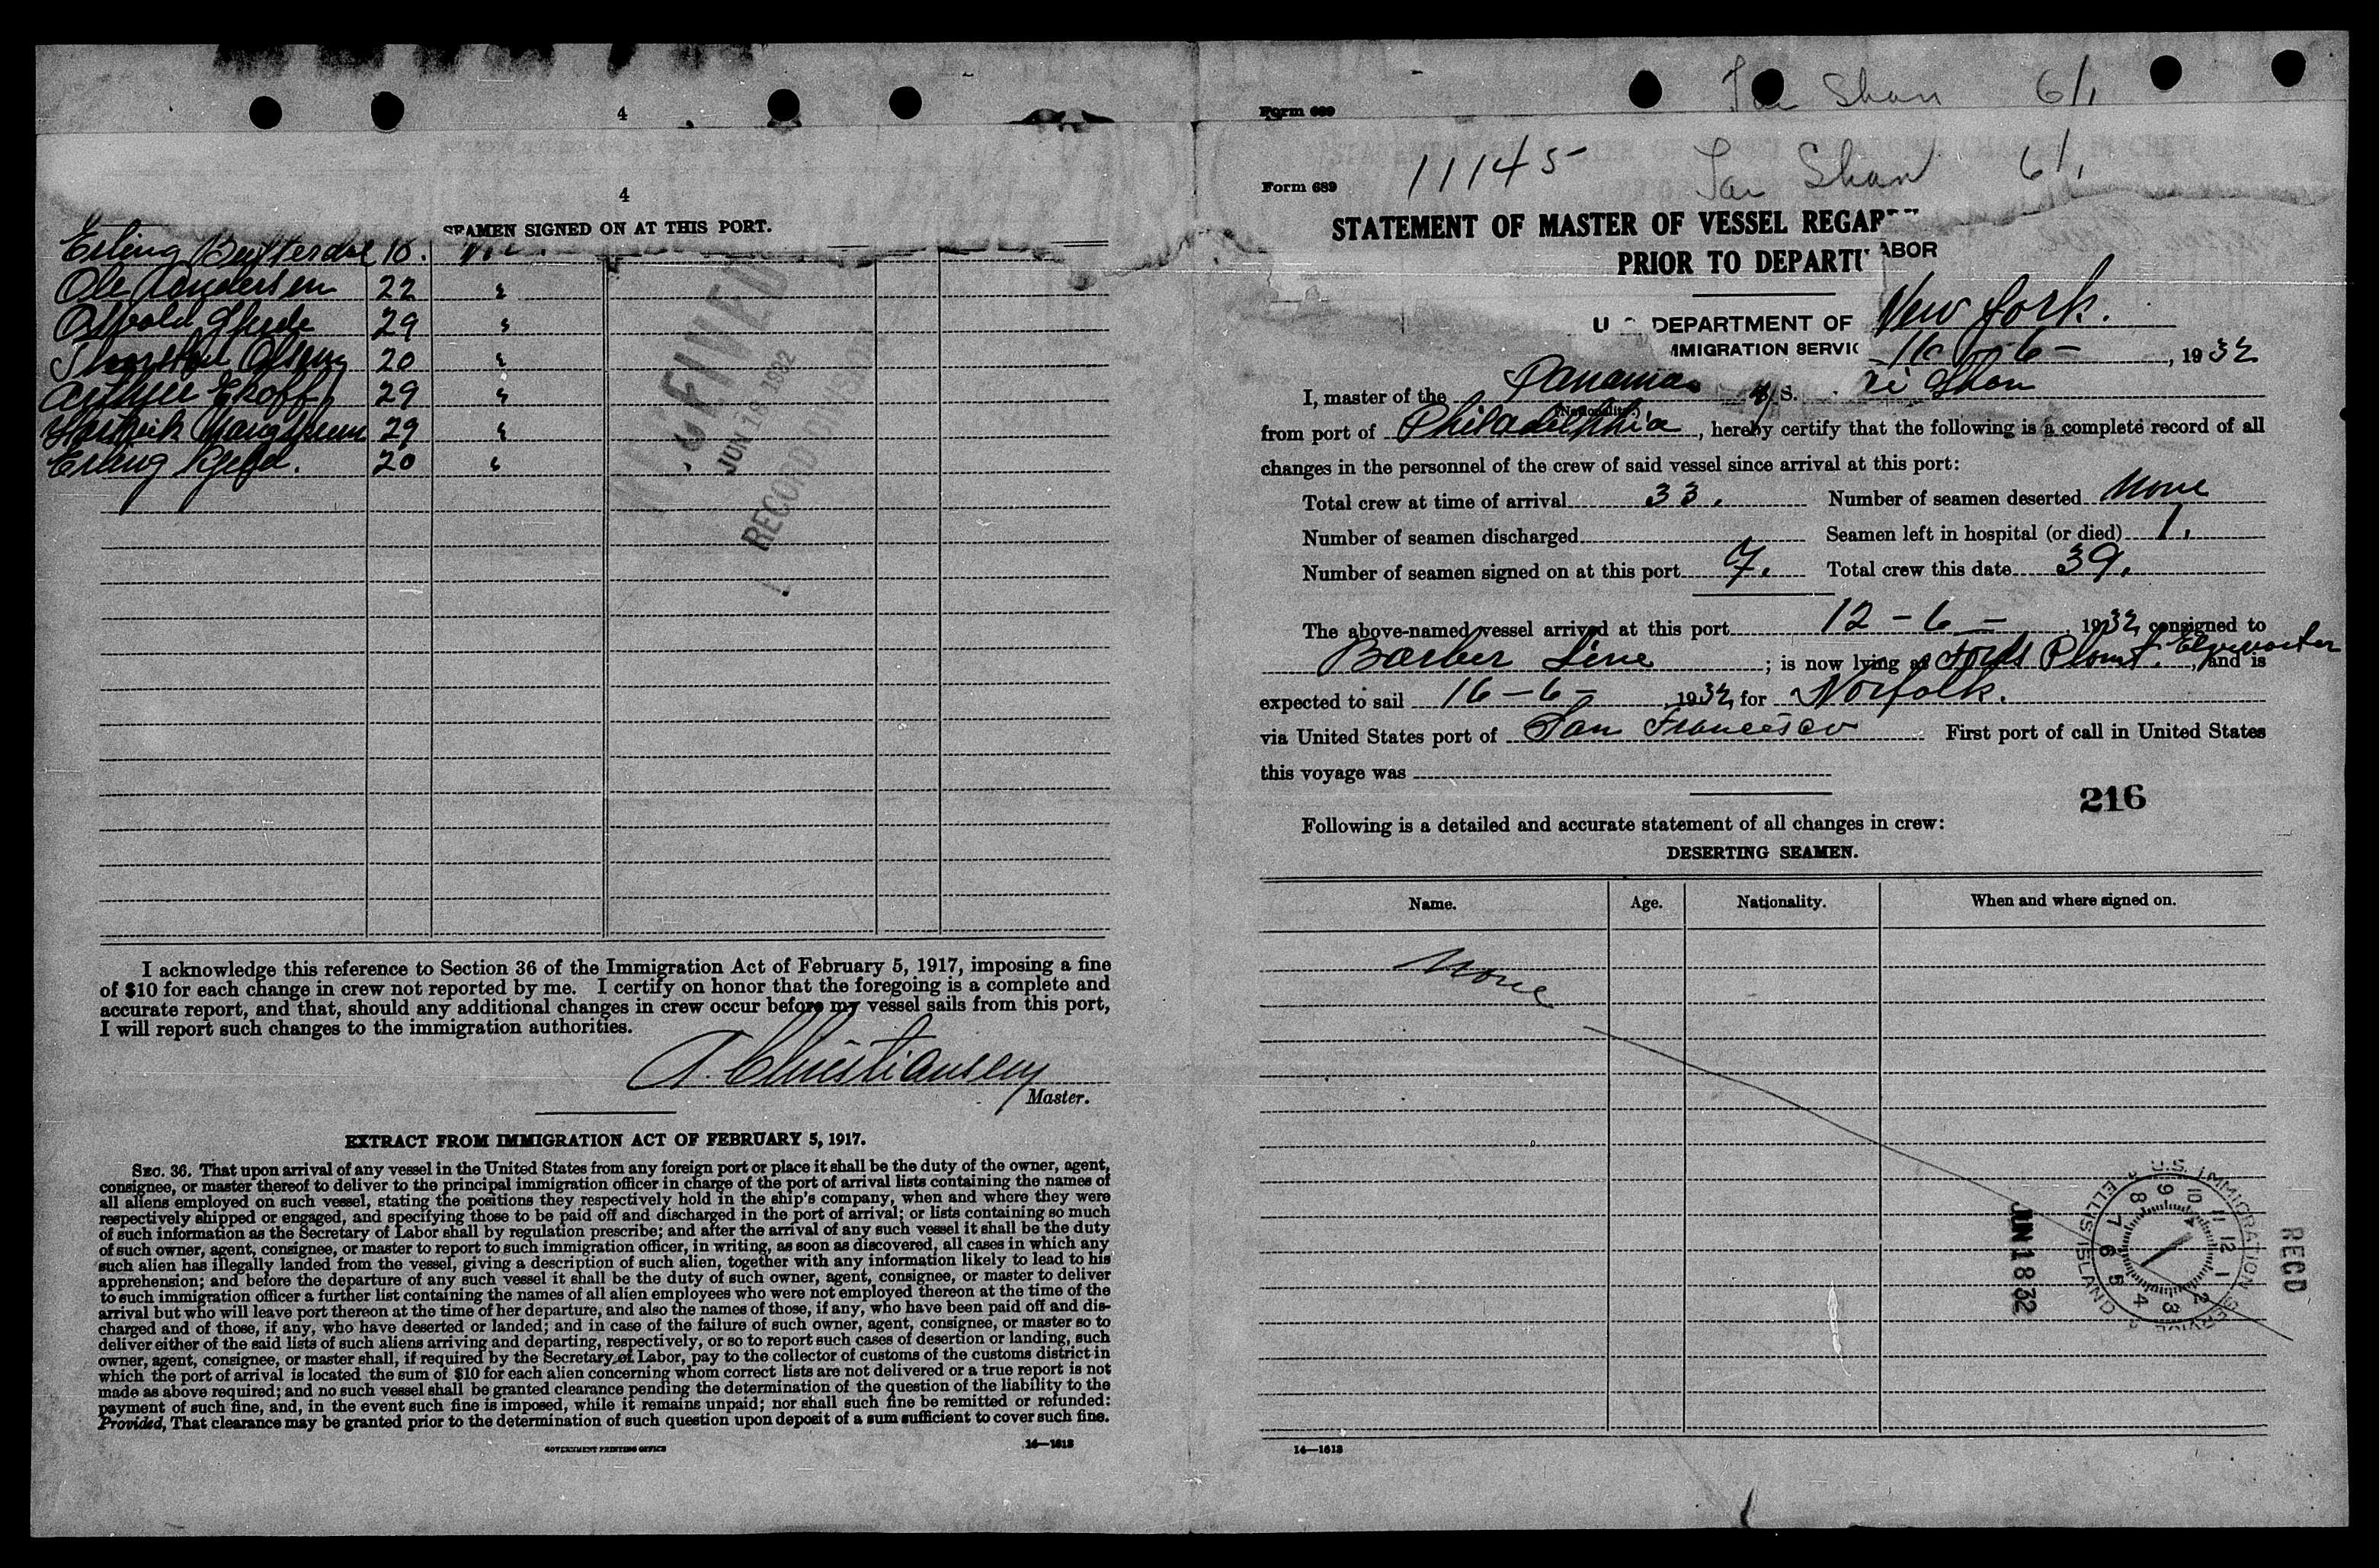 4
4
SEAMEN SIGNED ON AT THIS PORT.
Erling
Ole 22
Osvald 29
Olsen 20
29
29
Erling 20
JUN 18 1932
RECORD DIVISION
I acknowledge this reference to Section 36 of the Immigration Act of February 5, 1917, imposing a fine
of $10 for each change in crew not reported by me. I certify on honor that the foregoing is a complete and
accurate report, and that, should any additional changes in crew occur before my vessel sails from this port,
I will report such changes to the immigration authorities.
A. Christiansen
Master.
EXTRACT FROM IMMIGRATION ACT OF FEBRUARY 5, 1917.
SEC. 36. That upon arrival of any vessel in the United States from any foreign port or place it shall be the duty of the owner, agent,
consignee, or master thereof to deliver to the principal immigration officer in charge of the port of arrival lists containing the names of
all aliens employed on such vessel, stating the positions they respectively hold in the ship's company, when and where they were
respectively shipped or engaged, and specifying those to be paid off and discharged in the port of arrival; or lists containing so much
of such information as the Secretary of Labor shall by regulation prescribe; and after the arrival of any such vessel it shall be the duty
of such owner, agent, consignee, or master to report to such immigration officer, in writing, as soon as discovered, all cases in which any
such alien has illegally landed from the vessel, giving a description of such alien, together with any information likely to lead to his
apprehension; and before the departure of any such vessel it shall be the duty of such owner, agent, consignee, or master to deliver
to such immigration officer a further list containing the names of all alien employees who were not employed thereon at the time of the
arrival but who will leave port thereon at the time of her departure, and also the names of those, if any, who have been paid off and dis-
charged and of those, if any, who have deserted or landed; and in case of the failure of such owner, agent, consignee, or master so to
deliver either of the said lists of such aliens arriving and departing, respectively, or so to report such cases of desertion or landing, such
owner, agent, consignee, or master shall, if required by the Secretary of Labor, pay to the collector of customs of the customs district in
which the port of arrival is located the sum of $10 for each alien concerning whom correct lists are not delivered or a true report is not
made as above required; and no such vessel shall be granted clearance pending the determination of the question of the liability to the
payment of such fine, and, in the event such fine is imposed, while it remains unpaid; nor shall such fine be remitted or refunded:
Provided, That clearance may be granted prior to the determination of such question upon deposit of a sum sufficient to cover such fine.
GOVERNMENT PRINTING OFFICE 14—1613
Form 689 Tai Shan 6/1
Form 689 11145 Tai Shan 6/1
STATEMENT OF MASTER OF VESSEL REGAR
PRIOR TO DEPARTU ABOR
U S DEPARTMENT OF New York.
MMIGRATION SERVIC 16-6- , 1932
I, master of the Panama M/S. ai Shan
(Nationality.)
from port of Philadelphia , hereby certify that the following is a complete record of all
changes in the personnel of the crew of said vessel since arrival at this port:
Total crew at time of arrival 33. Number of seamen deserted None
Number of seamen discharged Seamen left in hospital (or died) 1.
Number of seamen signed on at this port 7. Total crew this date 39.
The above-named vessel arrived at this port 12-6- 1932, consigned to
Barber Line ; is now lying at Fords Plant. Edgewater , and is
expected to sail 16-6- 1932, for Norfolk.
via United States port of San Francisco First port of call in United States
this voyage was
216
Following is a detailed and accurate statement of all changes in crew:
DESERTING SEAMEN.
Name. Age. Nationality. When and where signed on.
None
RECD
U.S. IMMIGRATION SERVICE ELLIS ISLAND
12 1 2 3 4 5 6 7 8 9 10 11
JUN 18 32
14—1613